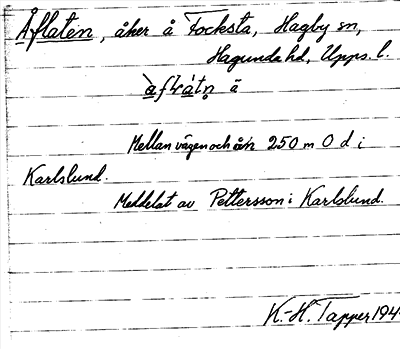 Åflaten, åker å Focksta, Hagby sn,
Hagunda hd, Upps. l.
Mellan vägen och ån 250 m O d. i
Karlslund.
Meddelat av Pettersson i Karlslund.
K.-H. Tapper 194